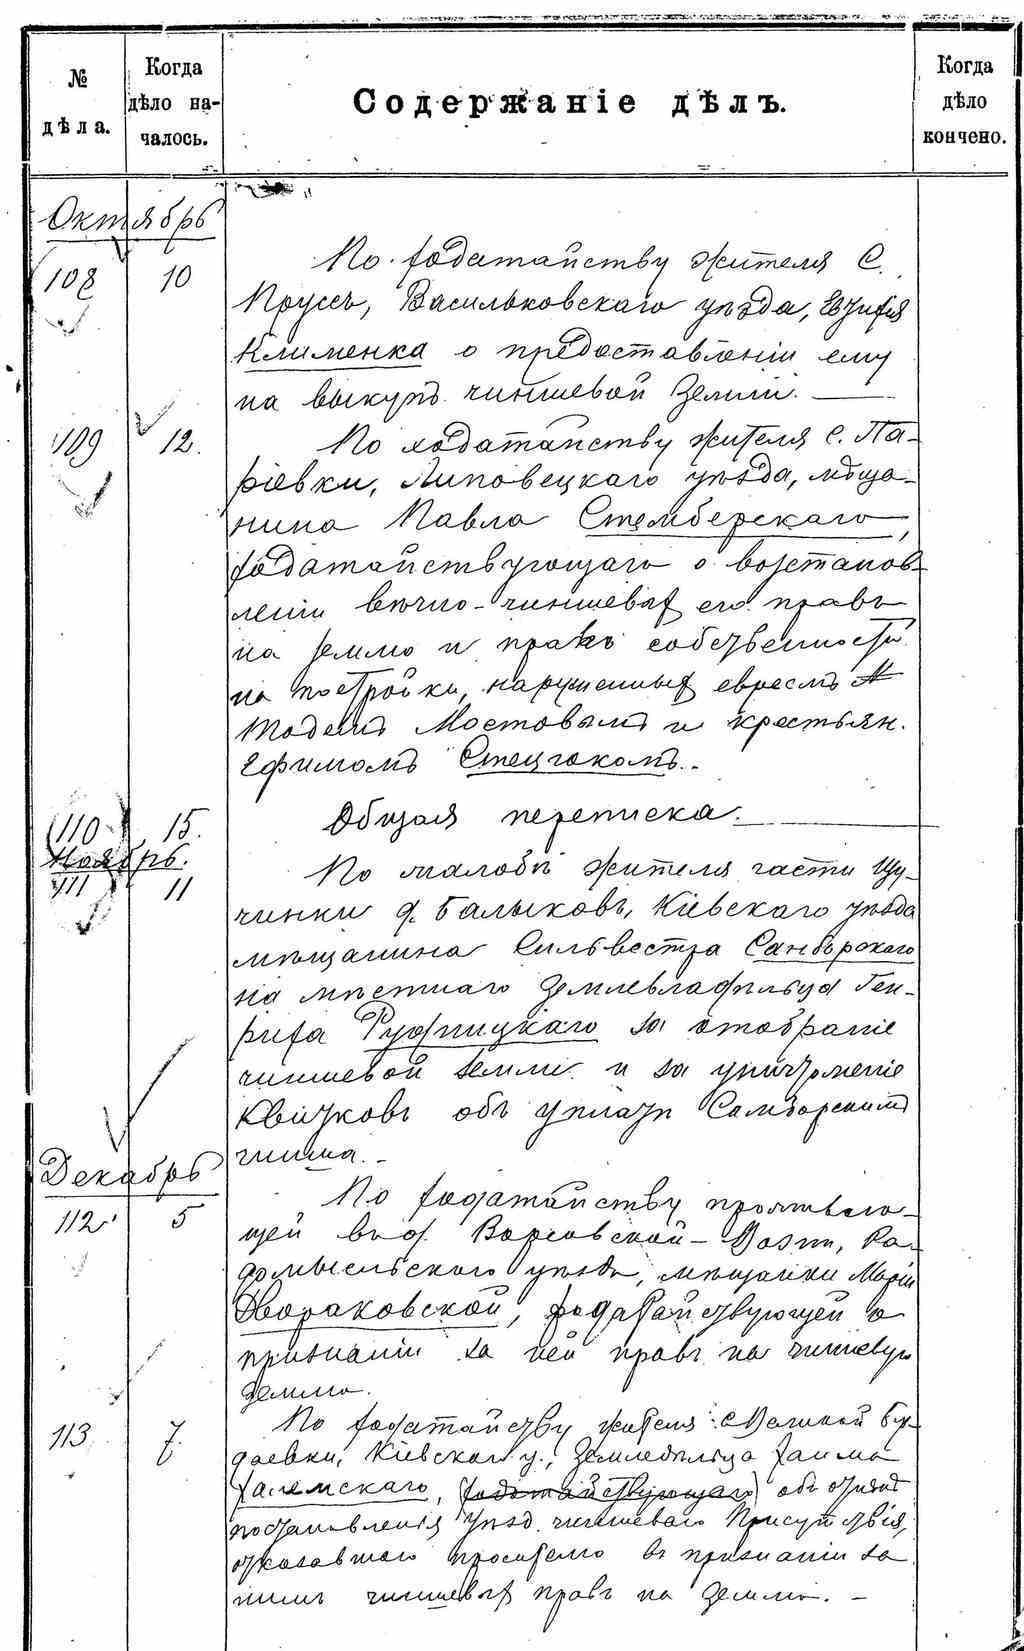 № дѣла.
Когда дѣло началось.
Содержаніе дѣлъ.
Когда дѣло кончено.
Октябрь
108 10 По ходатайству жителя с.
Пруссъ, Васильковскаго уѣзда,
Клименка о предоставленіи ему
на выкупъ чиншевой земли.
109 12. По ходатайству жителя с. Па-
ріевки, Липовецкаго уѣзда, мѣща-
нина Павла Стемберскаго,
ходатайствующаго о возстанов-
леніи вѣчно-чиншевых его правъ
на землю и правъ собственности
на постройки, нарушенных евреемъ
Мостовымъ и крестьян.
Ефимомъ Стецюкомъ.
110 15. Общая переписка.
Ноябрь.
111 11 По жалобѣ жителя части Щу-
чинки д. Балыковъ, Кіевскаго уѣзда
мѣщанина Сильвестра Санборскаго
на мѣстнаго землевладѣльца Ген-
риха Рудницкаго за отобраніе
чиншевой земли и за уничтоженіе
квитковъ объ уплатѣ Самборскимъ
чинша.
Декабрь
112 5 По ходатайству проживаю-
щей въ д. Ворсовской-Гозти, Ра-
домысльскаго уѣзда, мѣщанки Маріи
Двораковской, ходатайствующей о
признаніи за ней правъ на чиншевую
землю.
113 7. По ходатайству жителя с. Великой Бу-
даевки, Кіевскаго у., земледѣльца
Халемскаго, (ходатайствующаго) объ отмѣнѣ
постановленія уѣзд. чиншеваго Присутствія,
отказавшаго просителю въ признаніи за
нимъ чиншевых правъ на землю.